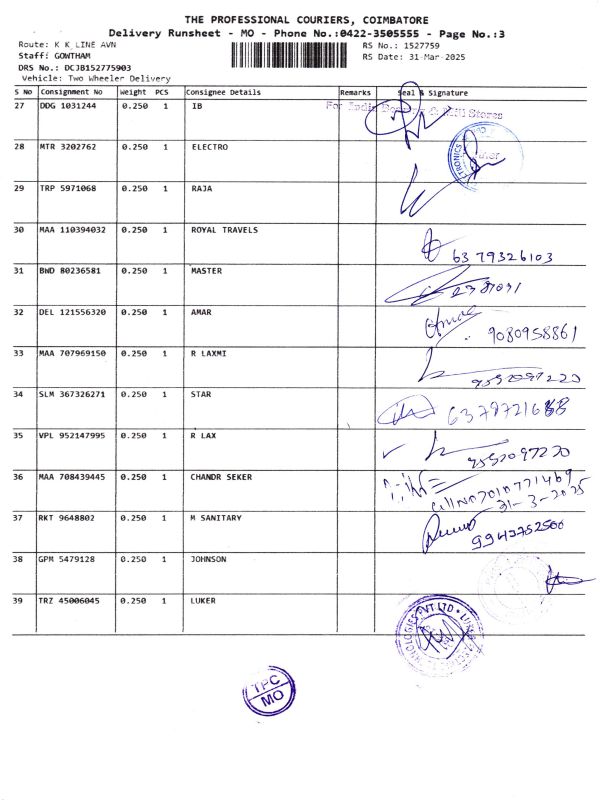 THE PROFESSIONAL COURIERS, COIMBATORE
Delivery Runsheet - MO - Phone No.:0422-3505555 - Page No.:3
Route: K K LINE AVN
RS No.: 1527759
Staff: GOWTHAM
RS Date: 31-Mar-2025
DRS No.: DCJB152775903
Vehicle: Two Wheeler Delivery
S No Consignment No Weight PCS Consignee Details Remarks Seal & Signature
27 DDG 1031244 0.250 1 IB
For India & Mill Stores
28 MTR 3202762 0.250 1 ELECTRO
29 TRP 5971068 0.250 1 RAJA
30 MAA 110394032 0.250 1 ROYAL TRAVELS
6379326103
31 BWD 80236581 0.250 1 MASTER
32 DEL 121556320 0.250 1 AMAR
9080958861
33 MAA 707969150 0.250 1 R LAXMI
9592097220
34 SLM 367326271 0.250 1 STAR
35 VPL 952147995 0.250 1 R LAX
9592097220
36 MAA 708439445 0.250 1 CHANDR SEKER
Cell No 7010771469
31-3-2025
37 RKT 9648802 0.250 1 M SANITARY
9943752500
38 GPM 5479128 0.250 1 JOHNSON
39 TRZ 45006045 0.250 1 LUKER
TECHNOLOGIES PVT LTD
TPC
MO